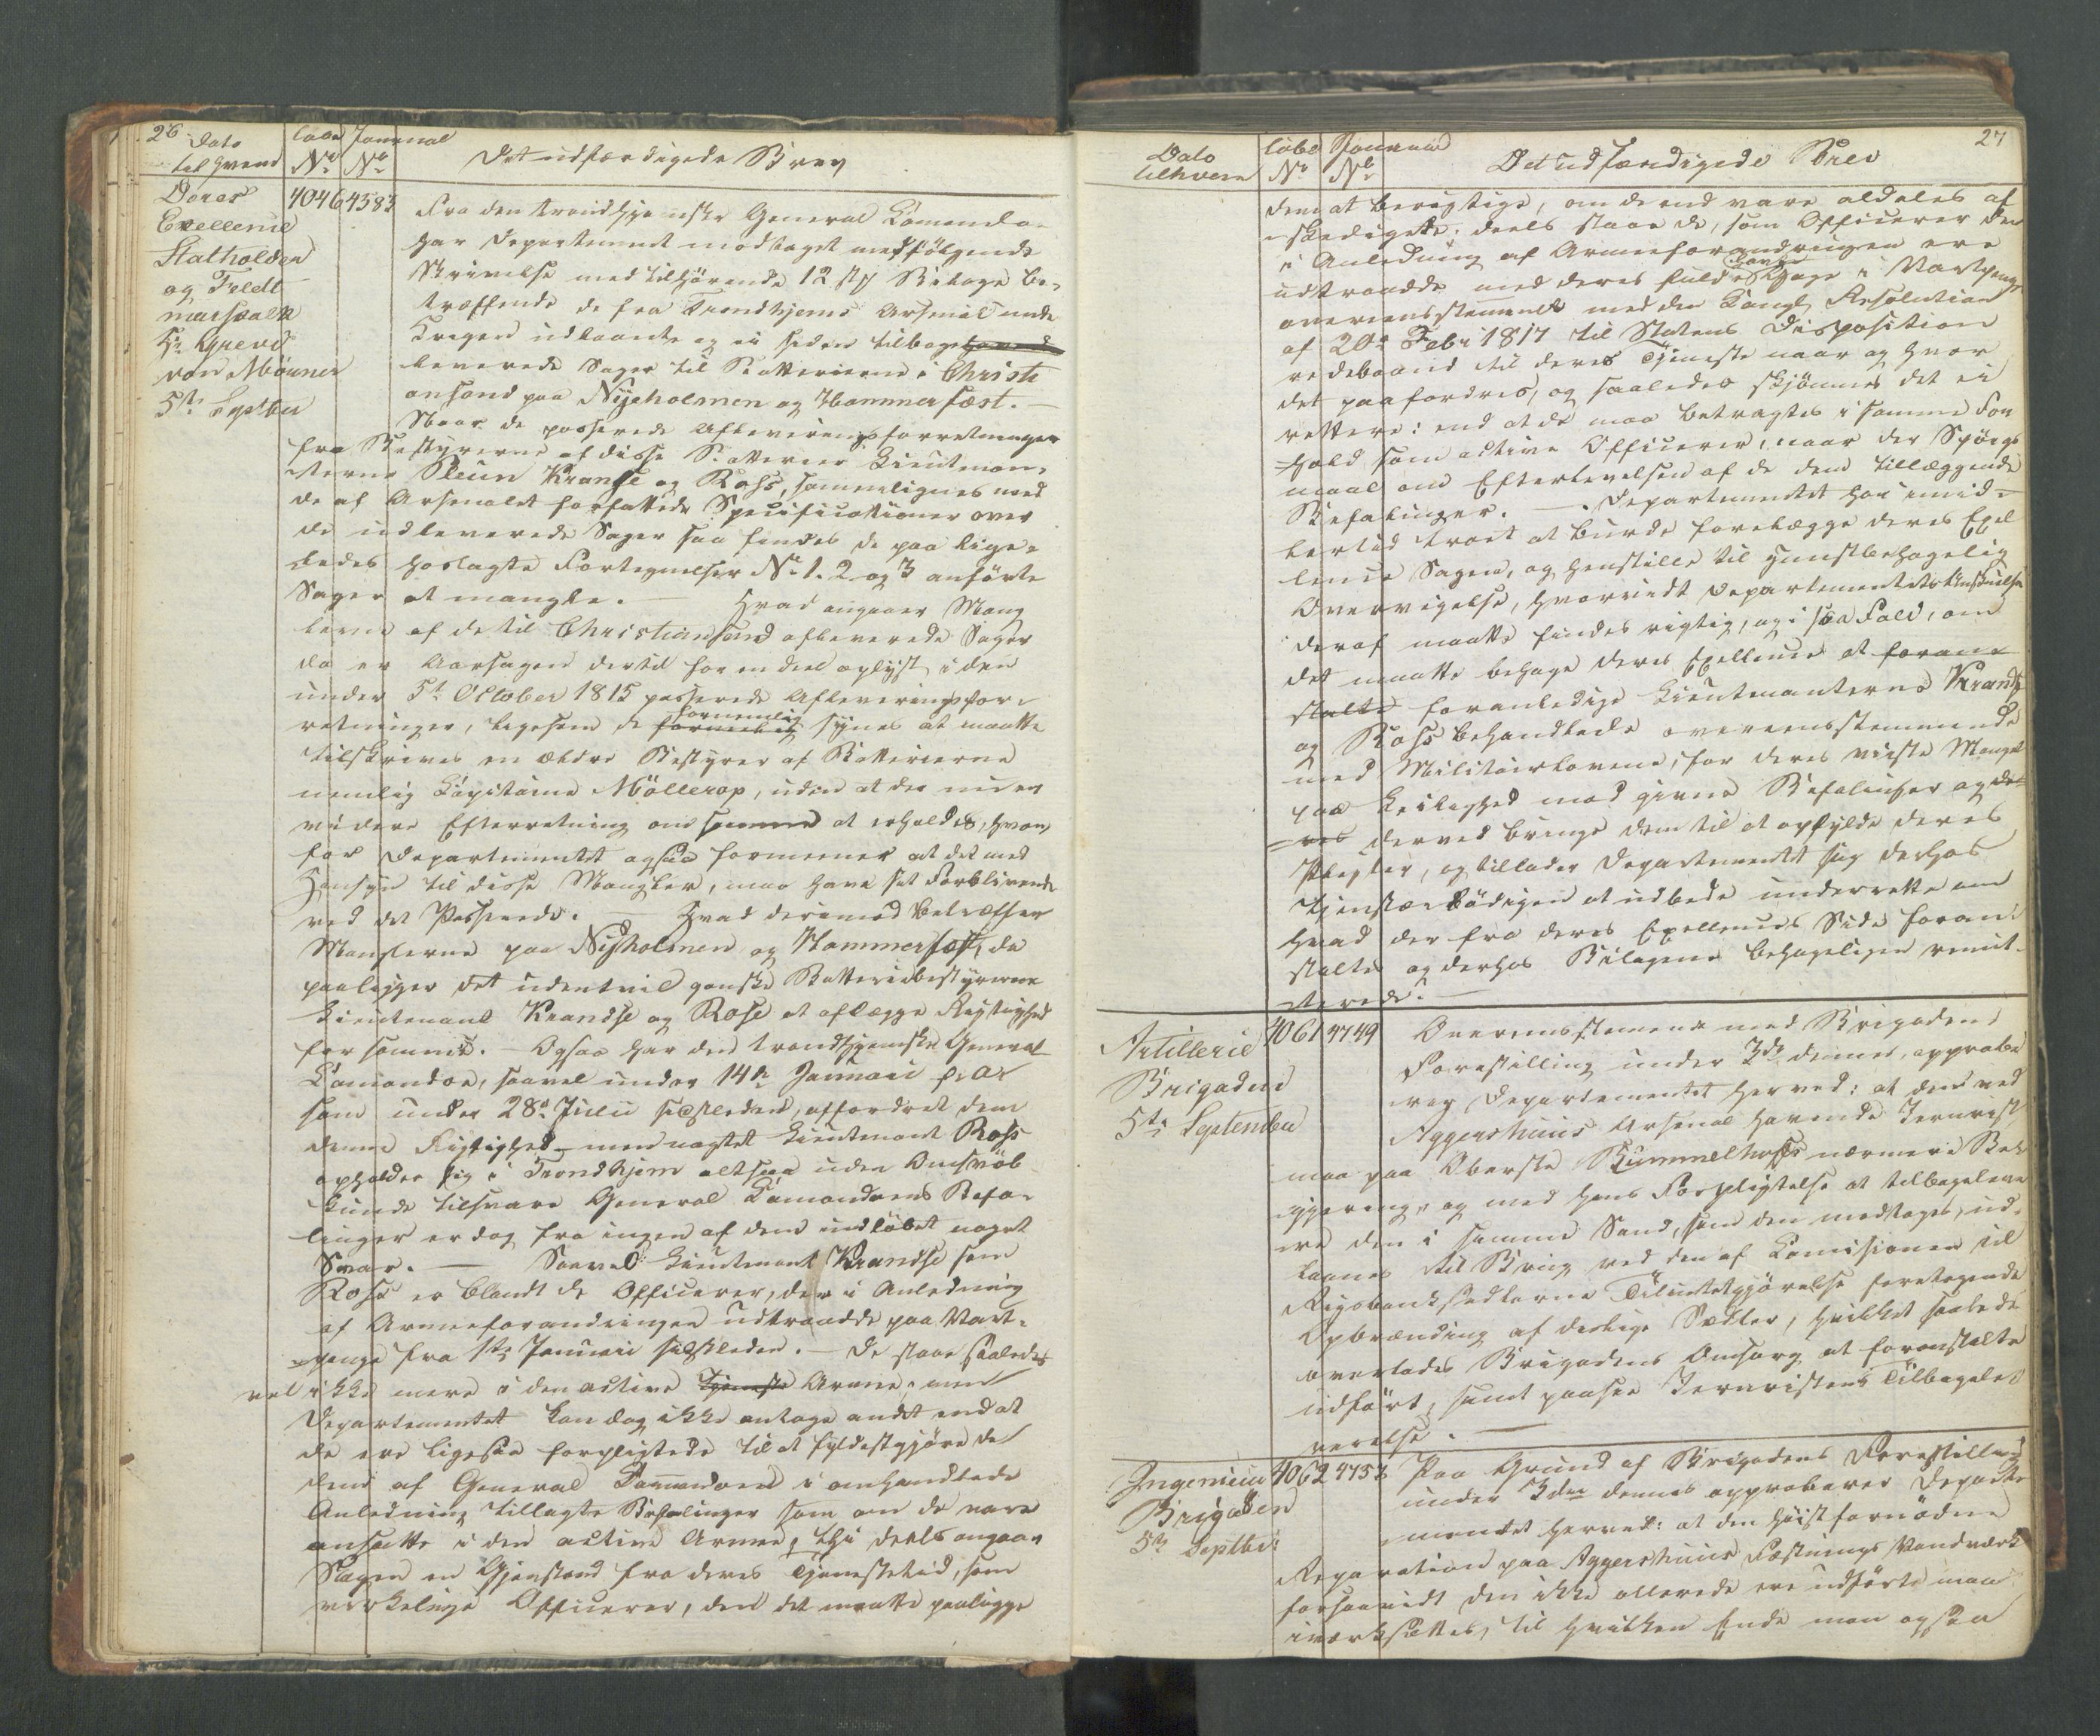 26
Dato
til hvem
Løbe
No
Journal
No
Det udfærdigede Brev
Deres
Excellence
Statholder
og Feldt
marskalk
Hr Greve
von Mörner
5te Septbr
4046
4583
Fra den trondhjemske General Comando
har Departementet modtaget medfølgende
Skrivelse med tilhørende 12 st Bilage be-
træffende de fra Trondhjems Arsenal unde
Krigen udlaante og ei siden tilbage
leverede Sager til Batterierne i Christi
ansand paa Nyeholmen og Hammerfæst. -
Naar de passerede Afleveringsforretninger
fra Bestyrerne af disse Batterier Lieutenan-
terne Krantse og Ross, sammenlignes med
de af Arsenalet forfattede Specificationer over
de udleverede Sager saa findes de paa lige-
ledes hoslagte Fortegnelser No 1. 2 og 3 anførte
Sager at mangle. - Hvad angaaer Mang
lerne af de til Christiansand afleverede Sager
da er Aarsagen dertil for en deel oplyst i den
under 5te October 1815 passerede Afleveringsfor-
retninger, ligesom de fornemlig synes at maatte
tilskrives en ældre Bestyrer af Batterierne
nemlig Capitaine Møllerop, uden at der nu er
videre Efterretning om samme at erholde, hvor
for Departementet ogsaa formeener at det med
Hensyn til disse Mangler, maa have sit Forblivende
ved det Passerede. - Hvad derimod betræffer
Manglerne paa Nyeholmen og Hammerfæst, da
paaligger det udentvil ganske Batteriebestyrerne
Lieutenant Krandse og Ross at aflægge Rigtighed
for samme. - Ogsaa har den trondhjemske General
Comando, saavel under 14de Januari p. a.
som under 28de Julii sidstleden, affordret dem
denne Rigtighed - men uagtet Lieutenant Ross
opholder sig i Trondhjem altsaa uden Omsvøb
kunde tilsvare General Comandoens Befa-
linger er dog fra ingen af dem indløbet noget
Svar. - Saavel Lieutenant Krandse som
Ross er blandt de Officierer, der i Anledning
af Armeeforandringen udtraadde paa Vart-
penge fra 1ste Januari sidstleden. - De staae saaledes
vel ikke mere i den active Tjeneste Armee, men
Departementet kan dog ikke antage andet end at
de ere ligesaa forpligtede til at fyldestgjøre de
dem af General Comandoen i omhandlede
Anledning tillagte Befalinger som om de vare
ansatte i den active Armee, thi deels angaaer
Sagen en Gjenstand fra deres Tjenestetid, som
virkelige Officierer, den det maatte paaligge
27
Dato
til hvem
Løbe
No
Journal
No
Det udfærdigede Brev
dem at berigtige, om de end vare aldeles af
skedigede; deels staae de, som Officierer der
i Anledning af Armeeforandringen ere
udtraadde med deres fulde Gage i Vartpenge
overeensstemmende med den Kongl Resolution
af 20de Febr 1817 til Statens Disposition
redebaand til deres Tjeneste naar og hvor
det paafordres, og saaledes skjønnes det ei
rettere: end at de maa betragtes i samme For
hold som active Officierer, naar der Spörgs
maal om Efterlevelsen af de dem tillæggende
Befalinger. - Departementet har imid-
lertid troet at burde forelægge deres Exel
lence Sagen, og henstille til gunstbehagelig
Overveielse, hvorvidt Departementets Anskuelse
deraf maatte findes rigtig, og i saa Fald, om
det maatte behage deres Exellence at foran
stalte foranledige Lieutenanterne Krands
og Ross behandlede overeensstemmende
med Militairlovene, for deres viiste Mangel
paa Lydighed mod givne Befalinger og de
res derved bringe dem til at opfylde deres
Pligter, og tillader Departementet sig derhos
tjenstærbødigen at udbede underrettes om
hvad der fra deres Exellences Side foran
staltes og derhos Bilagene behageligen remit-
terede. -
Artillerie
Brigaden
5te September
4061
4749
Overeensstemmende med Brigadens
Forestilling under 3de dennes, approbe
rer Departementet herved: at den ved
Aggershuus Arsenal havende Jernrist
maa paa Oberste Hummelhoffs nærmere Rek
qvirering, og med hans Forpligtelse at tilbageleve
re den i samme Stand, som den modtages, ud-
laanes til Brug ved den af Comissionen til
Rigsbanksedlernes Tilintetgjørelse foretagende
Opbrænding af deslige Sedler, hvilket saaledes
overlades Brigadens Omsorg at foranstalte
udført, samt paasee Jernristens Tilbagele
verelse. -
Ingenieur
Brigaden
5te Septbr
4062
4753
Paa Grund af Brigadens Forestilling
under 3die dennes approberer Departe
mentet herved: at den høist fornødne
Reparation paa Aggershuus Fæstnings Vandværk
forsaavidt den ikke allerede ere udførte maa
iværksættes, til hvilken Ende man ogsaa